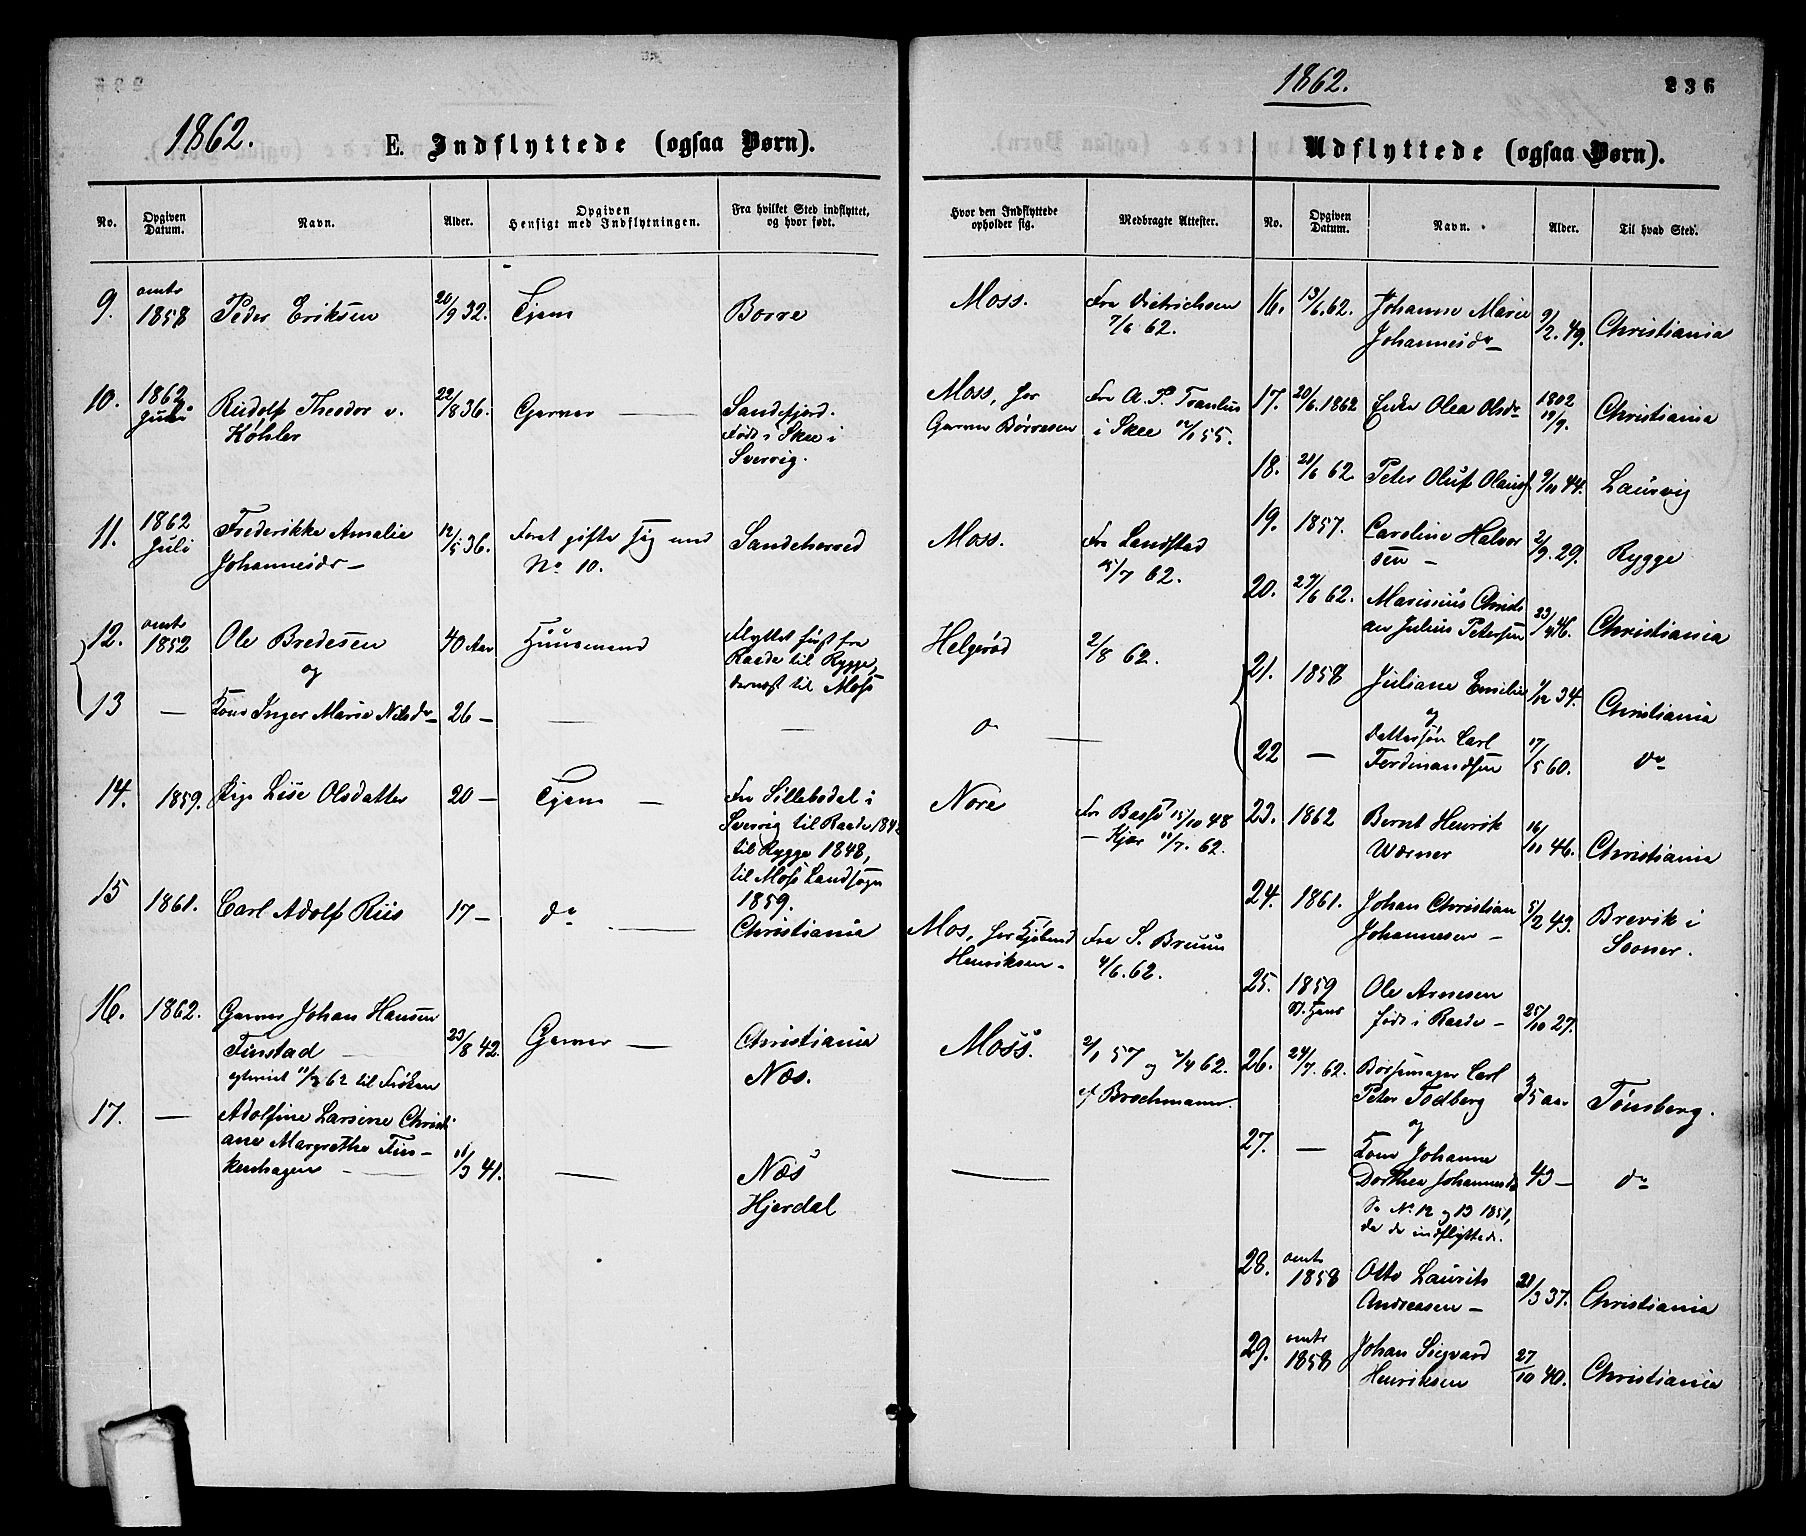 1862.
236
1862.
E. Indflyttede (ogsaa Børn).
Udflyttede (ogsaa Børn).
No.
Opgiven Datum.
Navn.
Alder.
Opgiven Hensigt med Indflytningen.
Fra hvilket Sted indflyttet, og hvor født.
Hvor den Indflyttede opholder sig.
Medbragte Attester.
No.
Opgiven Datum.
Navn.
Alder.
Til hvad Sted.
9. omtr 1858 Peder Eriksen 20/9 32. Tjene Borre Moss. Fra Dietrichsen 7/6 62.
10. 1862 Juli Rudolf Theodor v. Køhler 22/8 36. Garver — Sandefjord. Født i Skee i Sverrig. Moss, hos Garver Børresen Fra A. P. i Skee 12/1 55.
11. 1862 Juli Frederikke Amalie Johannesdr — 12/5 36. For at gifte sig med No 10. Sandeherred Moss. Fra Landstad 15/7 62.
12. omtr 1852 Ole Bredesen 40 Aar Huusmand flyttet først fra Raade til Rygge, dernæst til Moss Helgerød 2/8 62.
og
13 — Kone Inger Marie Nilsdr 26 — — — " —
14. 1859. Pige Lise Olsdatter 20 — Tjene — Fra Sillebodal i Sverrig til Raade 1842 til Rygge 1848, til Moss Landsogn 1859. Nore Fra Basse 15/10 48 — Kjær 11/7. 62.
15 1861. Carl Adolf Riis 17 — do — Christiania Mos, hos Kjøbmd Henriksen — Fra S. Bruun 4/6. 62.
16. 1862. Garver Johan Hansen Finstad 23/8 42. Garver — Christiania Næs. Moss. 2/1 57 og 2/4 62. af Brochmann.
17. — Adolfine Larsine Christiane Margrethe Finkenhagen — 11/3 41. — Næs Hjerdal —
16. 13/6. 62. Johanne Marie Johannesdr — 9/2. 49. Christiania
17. 20/6. 1862 Enke Olea Olsdr 1802 19/9. Christiania
18. 21/6 62. Peter Oluf Olaus 9/10 44. Laurvig
19. 1857. Caroline Halvorsen — 2/9. 29. Rygge
20. 27/6 62. Marinius Christian Julius Petersen 23/4 46. Christiania
21. 1858 Juliane Emilie 1/12 34. Christiania
og
22 — Dattersøn Carl Ferdinandsen 17/5 60. do
23. 1862 Bernt Henrik Wærner 16/11 46. Christiania
24. 1861. Johan Christian Johannesen — 5/2 43. Brevik i Sooner.
25. 1859 St. Hans Ole Arnesen født i Raade — 25/10 27.
26. 24/7. 62. Børsemager Carl Peter Todberg 35 aar Tønsberg.
og
27. — Kone Johanne Dorthea Johannesdr 43 — do
Se No 12 og 13 1851, da de indflyttede.
28. omtr 1858 Otto Laurits Andreasen — 21/3 37. Christiania
29. omtr 1858 Johan Sigvard Henriksen 27/10 40. Christiania